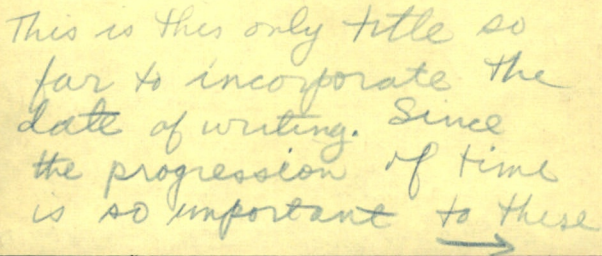 This is this only title so
far to incorporate the
date of writing. Since
the progression of time
is so important to these